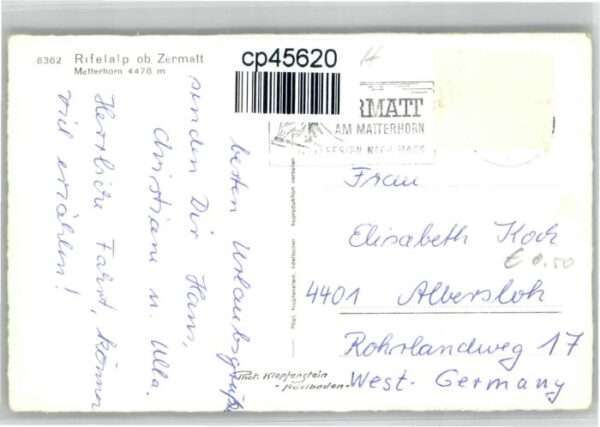 8362 Riffelalp ob Zermatt
Matterhorn 4478 m
cp45620
RMATT
AM MATTERHORN
FERIEN NACH MASS
besten Urlaubsgrüße
senden Dir Hans,
Christiane u. Ulla.
Herrliche Fahrt, können
viel erzählen!
Frau
Elisabeth Koch
€ 0.50
4401 Albersloh
Rohrlandweg 17
West. Germany
Phot. Klopfenstein
- Adelboden -